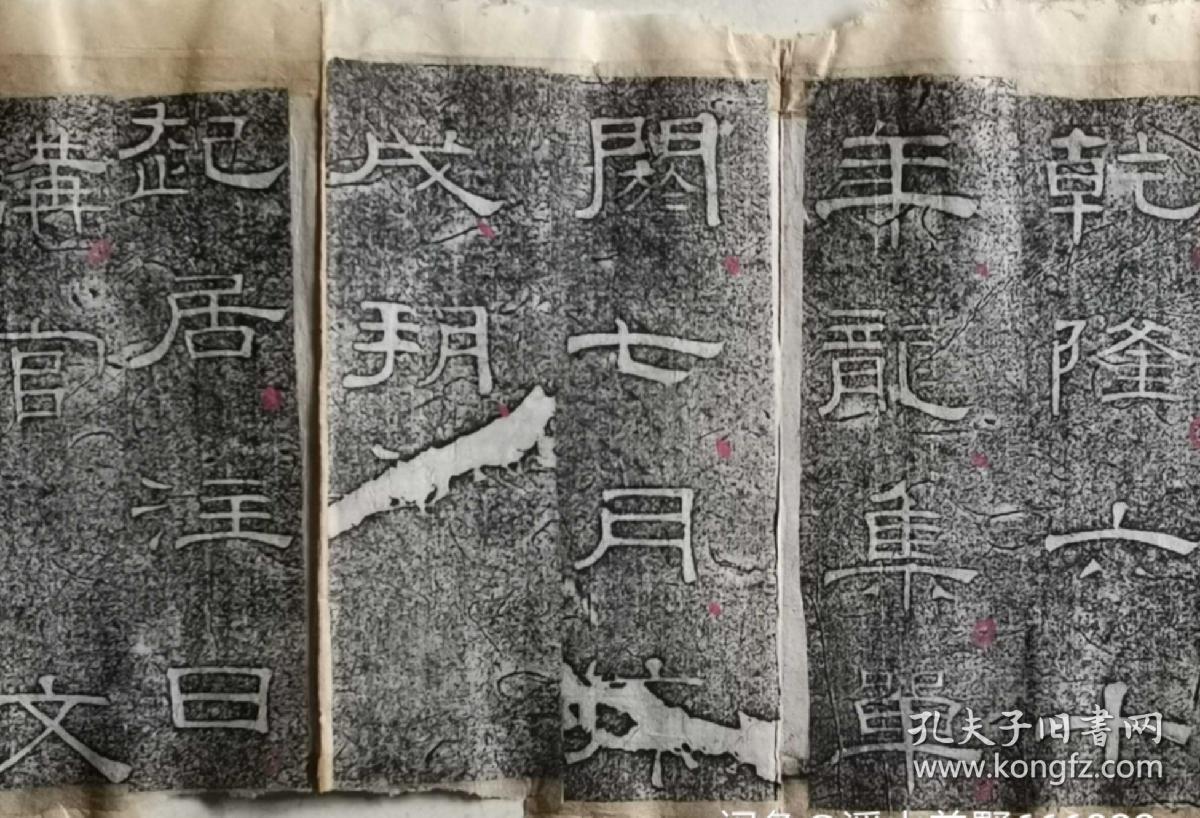 乾隆六十
年龍集單
閼七月庚
戌朔
起居注日
講官文
孔夫子旧书网
www.kongfz.com